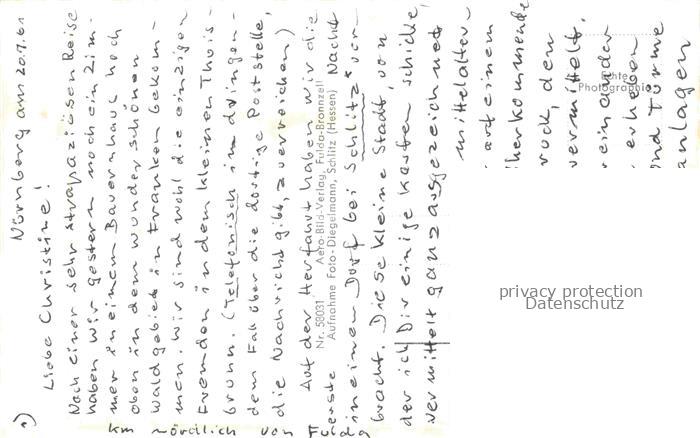 1)
Nürnberg am 20.7.61
Liebe Christine!
Nach einer sehr strapaziösen Reise
haben wir gestern noch ein Zim-
mer in einem Bauernhaus hoch
oben in dem wunderschönen
Waldgebiet in Franken bekom-
men. Wir sind wohl die einzigen
Fremden in dem kleinen Thuis-
brunn. (Telefonisch im dringen-
dem Fall über die dortige Poststelle,
die Nachricht gibt, zu erreichen)
Auf der Herfahrt haben wir die
erste Nacht
in einem Dorf bei Schlitz* ver-
bracht. Diese kleine Stadt, von
der ich Dir einige Karten schicke,
vermittelt ganz ausgezeichnet
mittelalter-
einem
herkommende
ruck, den
vermittelt.
einander
erheben
und Türme
anlagen
km nördlich von Fulda
Nr. 58031 Aero-Bild-Verlag, Fulda-Bronnzell
Aufnahme Foto-Diegelmann, Schlitz (Hessen)
Echte
Photographie
privacy protection
Datenschutz